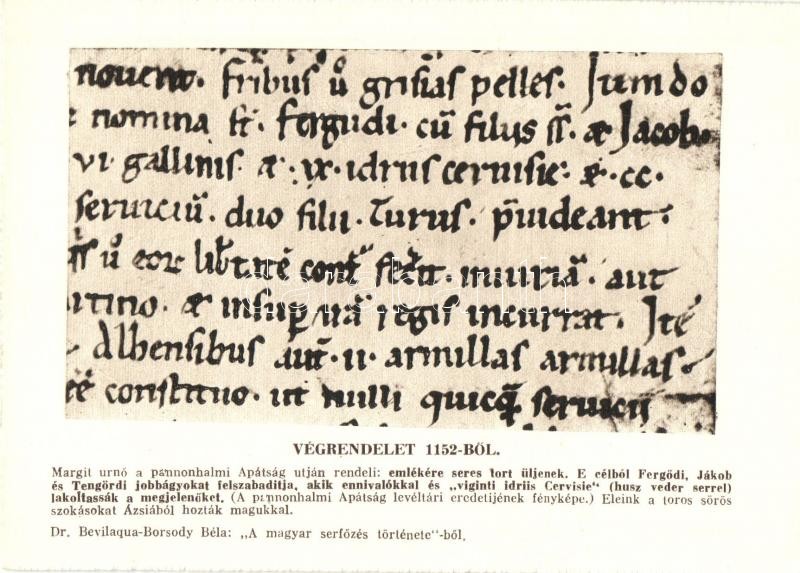 nouem. fribus u grisias pelles. Jum do
nomina st. fergudi. cu filiis ss. æ Jacob.
vi gallinis æ. xx. idriis ceruisie. æ. cc.
seruiciu. duo filii. Turus. puideant.
u eor libtate stat iniuria. aut
æ insup ira regis incurrat. Ite
Albensibus aut. ii. armillas armillas.
constituo. ut nulli quicq seruicii
darabanth
VÉGRENDELET 1152-BŐL.
Margit urnő a pannonhalmi Apátság utján rendeli: emlékére seres tort üljenek. E célból Fergödi, Jákob
és Tengördi jobbágyokat felszabaditja, akik ennivalókkal és „viginti idriis Cervisie" (husz veder serrel)
lakoltassák a megjelenőket. (A pannonhalmi Apátság levéltári eredetijének fényképe.) Eleink a toros sörös
szokásokat Ázsiából hozták magukkal.
Dr. Bevilaqua-Borsody Béla: „A magyar serfőzés története"-ből.